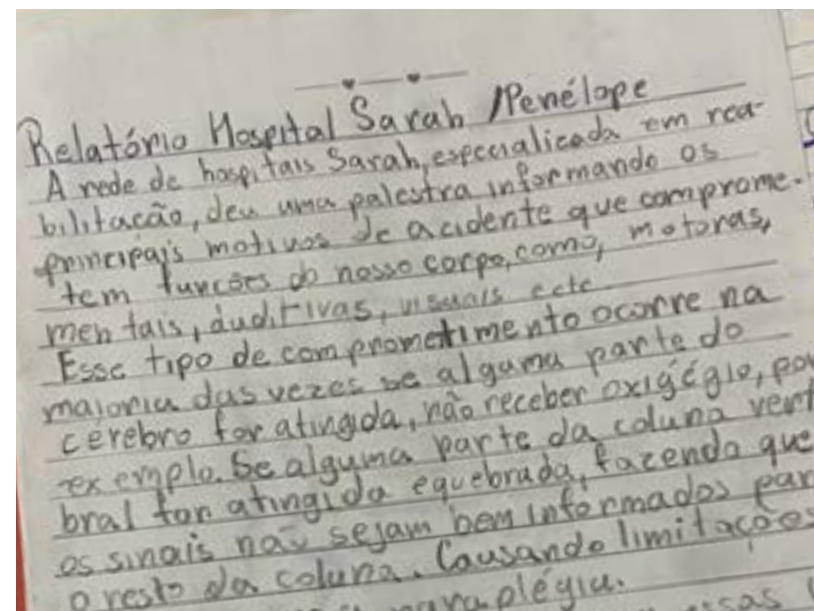 Relatório Hospital Sarah /Penélope
A rede de hospitais Sarah, especialicada em rea-
bilitacão, deu uma palestra informando os
principais motivos de acidente que comprome-
tem funcões do nosso corpo, como, motoras,
mentais, auditivas, visuais ectc
Esse tipo de comprometimento ocorre na
maioria das vezes se alguma parte do
cérebro for atingida, não receber oxigégio, por
exemplo. Se alguma parte da coluna vert
bral for atingida equebrada, fazendo que
os sinais não sejam bem informados par
o resto da coluna. Causando limitações
paraplégia.